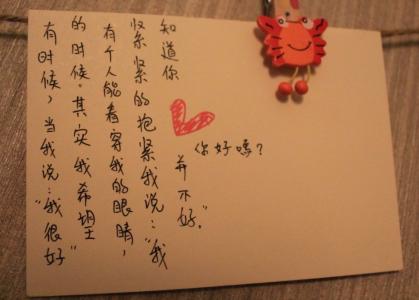 有时候，当我说：“我很好”
的时候。其实我希望
有个人能看穿我的眼睛，
紧紧的抱紧我说：“我
知道你
并不好。”
你好嗎？